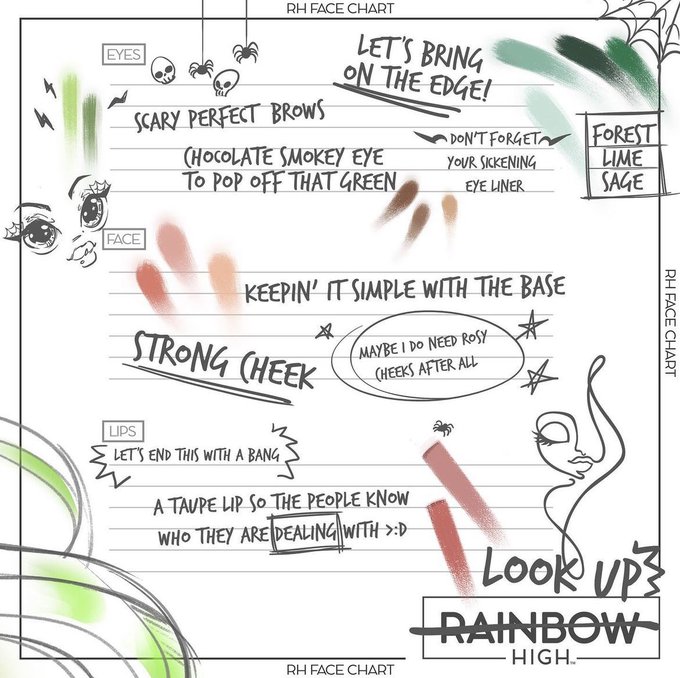 RH FACE CHART
EYES
LET'S BRING
ON THE EDGE!
SCARY PERFECT BROWS
DON'T FORGET
YOUR SICKENING
EYE LINER
FOREST
LIME
SAGE
CHOCOLATE SMOKEY EYE
TO POP OFF THAT GREEN
FACE
KEEPIN' IT SIMPLE WITH THE BASE
STRONG CHEEK
MAYBE I DO NEED ROSY
CHEEKS AFTER ALL
RH FACE CHART
LIPS
LET'S END THIS WITH A BANG
A TAUPE LIP SO THE PEOPLE KNOW
WHO THEY ARE DEALING WITH >:D
LOOK UP
RAINBOW
HIGH™
RH FACE CHART